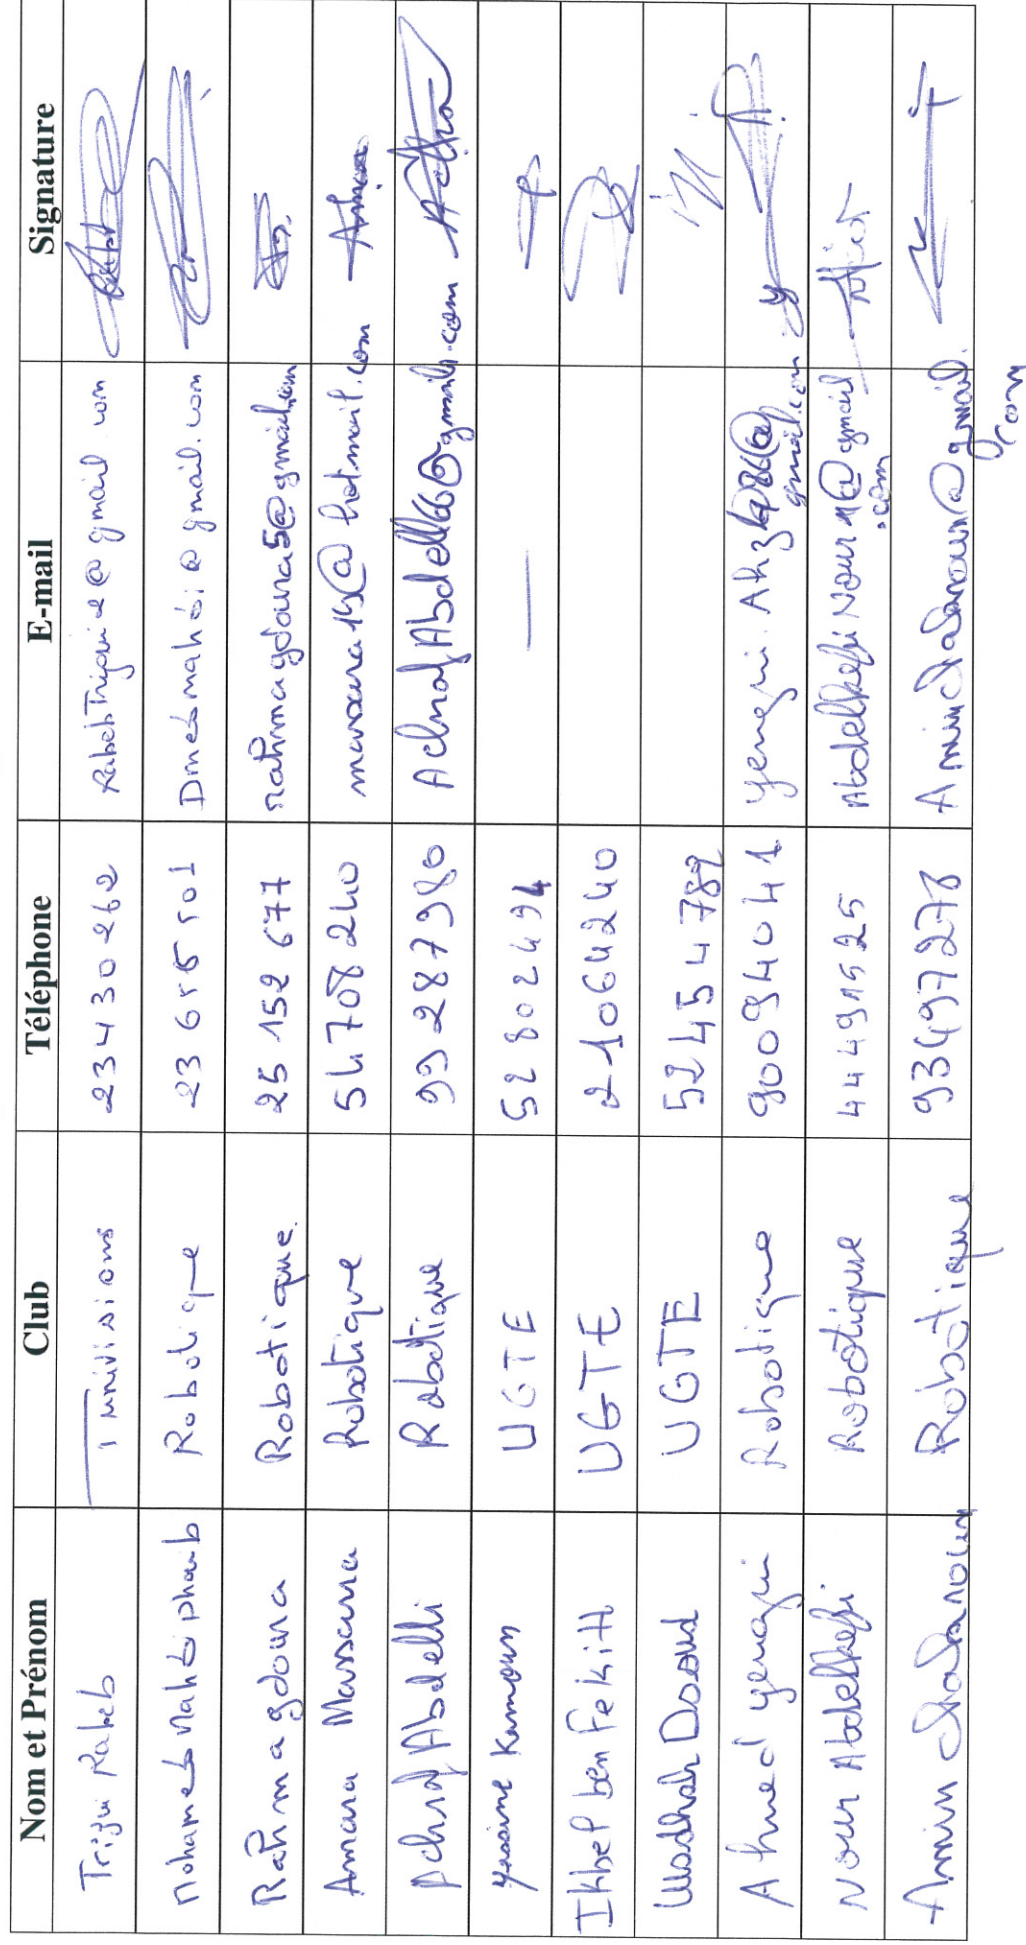 Nom et Prénom Club Téléphone E-mail Signature
Trigui Rabeb Tunivisions 23430262 RabebTrigui2@gmail.com
Mohamed Mahdi Robotique 23 615 501 Dmedmahdi@gmail.com
Rahma gdoura Robotique 25 152 677 rahmagdoura5@gmail.com
Amara Massara Robotique 54708240 @hotmail.com
Achraf Abdelli Robotique 99 287980 AchrafAbdelli66@gmail.com
Yassine Kamoun UGTE 52802494 —
Ikbel ben Fekih UGTE 21064240
Daoud UGTE 52454789
Ahmed yengui Robotique 90094041 yengui.
gmail.com
Nour Abdelkefi Robotique 44491525 AbdelkefiNour1@gmail
.com
Amin chabanoun Robotique 93497278 Aminchabanoun@gmail.
com